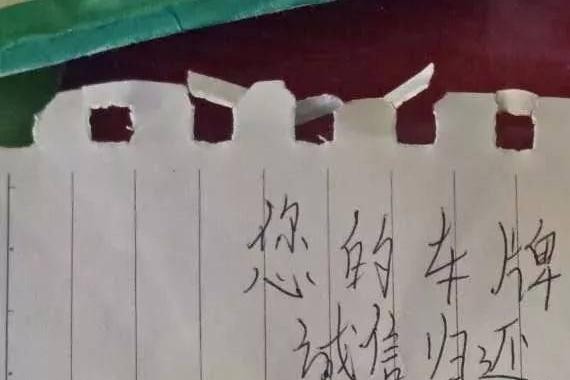 您的车牌
诚信归还